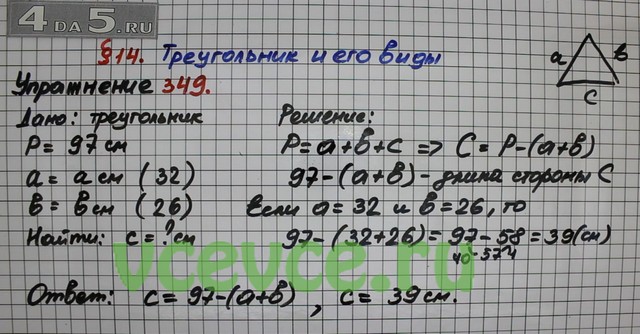 4 DA 5.RU
§14. Треугольник и его виды
Упражнение 349.
a в
c
Дано: треугольник
P = 97 см
a = a см (32)
в = в см (26)
Найти: c = ? см
Решение:
P = a + в + c => C = P-(a+в)
97-(a+в) - длина стороны C
Если a = 32 и в = 26, то
97-(32+26) = 97-58 = 39(см)
vcevce.ru
Ответ: c = 97-(a+в), c = 39 см.